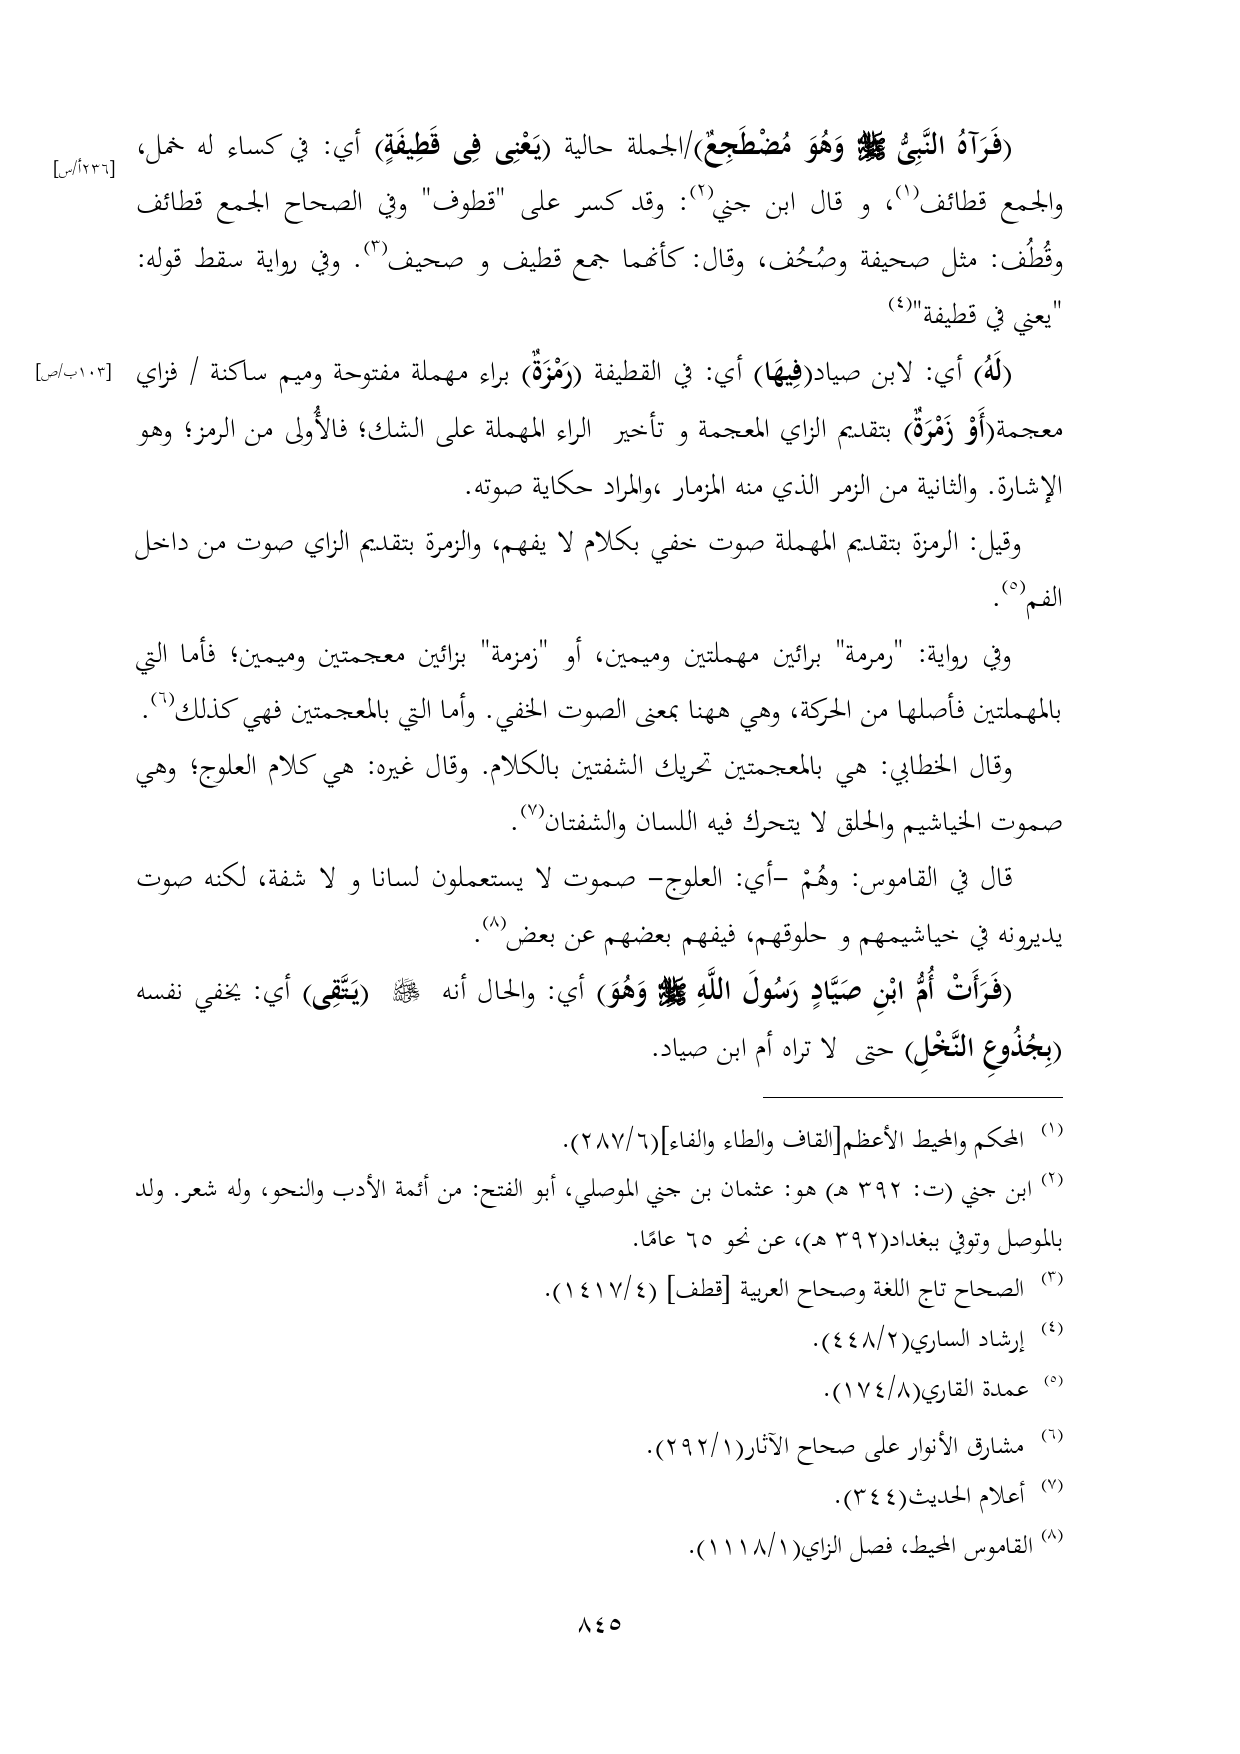 (فَرَآهُ النَّبِىُّ ﷺ وَهُوَ مُضْطَجِعٌ)/الجملة حالية (يَعْنِى فِى قَطِيفَةٍ) أي: في كساء له خمل،
[٢٣٦أ/س]
والجمع قطائف(١)، و قال ابن جني(٢): وقد كسر على "قطوف" وفي الصحاح الجمع قطائف
وقُطُف: مثل صحيفة وصُحُف، وقال: كأنهما جمع قطيف و صحيف(٣). وفي رواية سقط قوله:
"يعني في قطيفة"(٤)
(لَهُ) أي: لابن صياد(فِيهَا) أي: في القطيفة (رَمْزَةٌ) براء مهملة مفتوحة وميم ساكنة / فزاي
[١٠٣ب/ص]
معجمة(أَوْ زَمْرَةٌ) بتقديم الزاي المعجمة و تأخير الراء المهملة على الشك؛ فالأُولى من الرمز؛ وهو
الإشارة. والثانية من الزمر الذي منه المزمار ،والمراد حكاية صوته.
وقيل: الرمزة بتقديم المهملة صوت خفي بكلام لا يفهم، والزمرة بتقديم الزاي صوت من داخل
الفم(٥).
وفي رواية: "رمرمة" برائين مهملتين وميمين، أو "زمزمة" بزائين معجمتين وميمين؛ فأما التي
بالمهملتين فأصلها من الحركة، وهي ههنا بمعنى الصوت الخفي. وأما التي بالمعجمتين فهي كذلك(٦).
وقال الخطابي: هي بالمعجمتين تحريك الشفتين بالكلام. وقال غيره: هي كلام العلوج؛ وهي
صموت الخياشيم والحلق لا يتحرك فيه اللسان والشفتان(٧).
قال في القاموس: وهُمْ –أي: العلوج– صموت لا يستعملون لسانا و لا شفة، لكنه صوت
يديرونه في خياشيمهم و حلوقهم، فيفهم بعضهم عن بعض(٨).
(فَرَأَتْ أُمُّ ابْنِ صَيَّادٍ رَسُولَ اللَّهِ ﷺ وَهُوَ) أي: والحال أنه ﷺ (يَتَّقِى) أي: يخفي نفسه
(بِجُذُوعِ النَّخْلِ) حتى لا تراه أم ابن صياد.
(١) المحكم والمحيط الأعظم[القاف والطاء والفاء](٢٨٧/٦).
(٢) ابن جني (ت: ٣٩٢ هـ) هو: عثمان بن جني الموصلي، أبو الفتح: من أئمة الأدب والنحو، وله شعر. ولد
بالموصل وتوفي ببغداد(٣٩٢ هـ)، عن نحو ٦٥ عامًا.
(٣) الصحاح تاج اللغة وصحاح العربية [قطف] (١٤١٧/٤).
(٤) إرشاد الساري(٤٤٨/٢).
(٥) عمدة القاري(١٧٤/٨).
(٦) مشارق الأنوار على صحاح الآثار(٢٩٢/١).
(٧) أعلام الحديث(٣٤٤).
(٨) القاموس المحيط، فصل الزاي(١١١٨/١).
٨٤٥